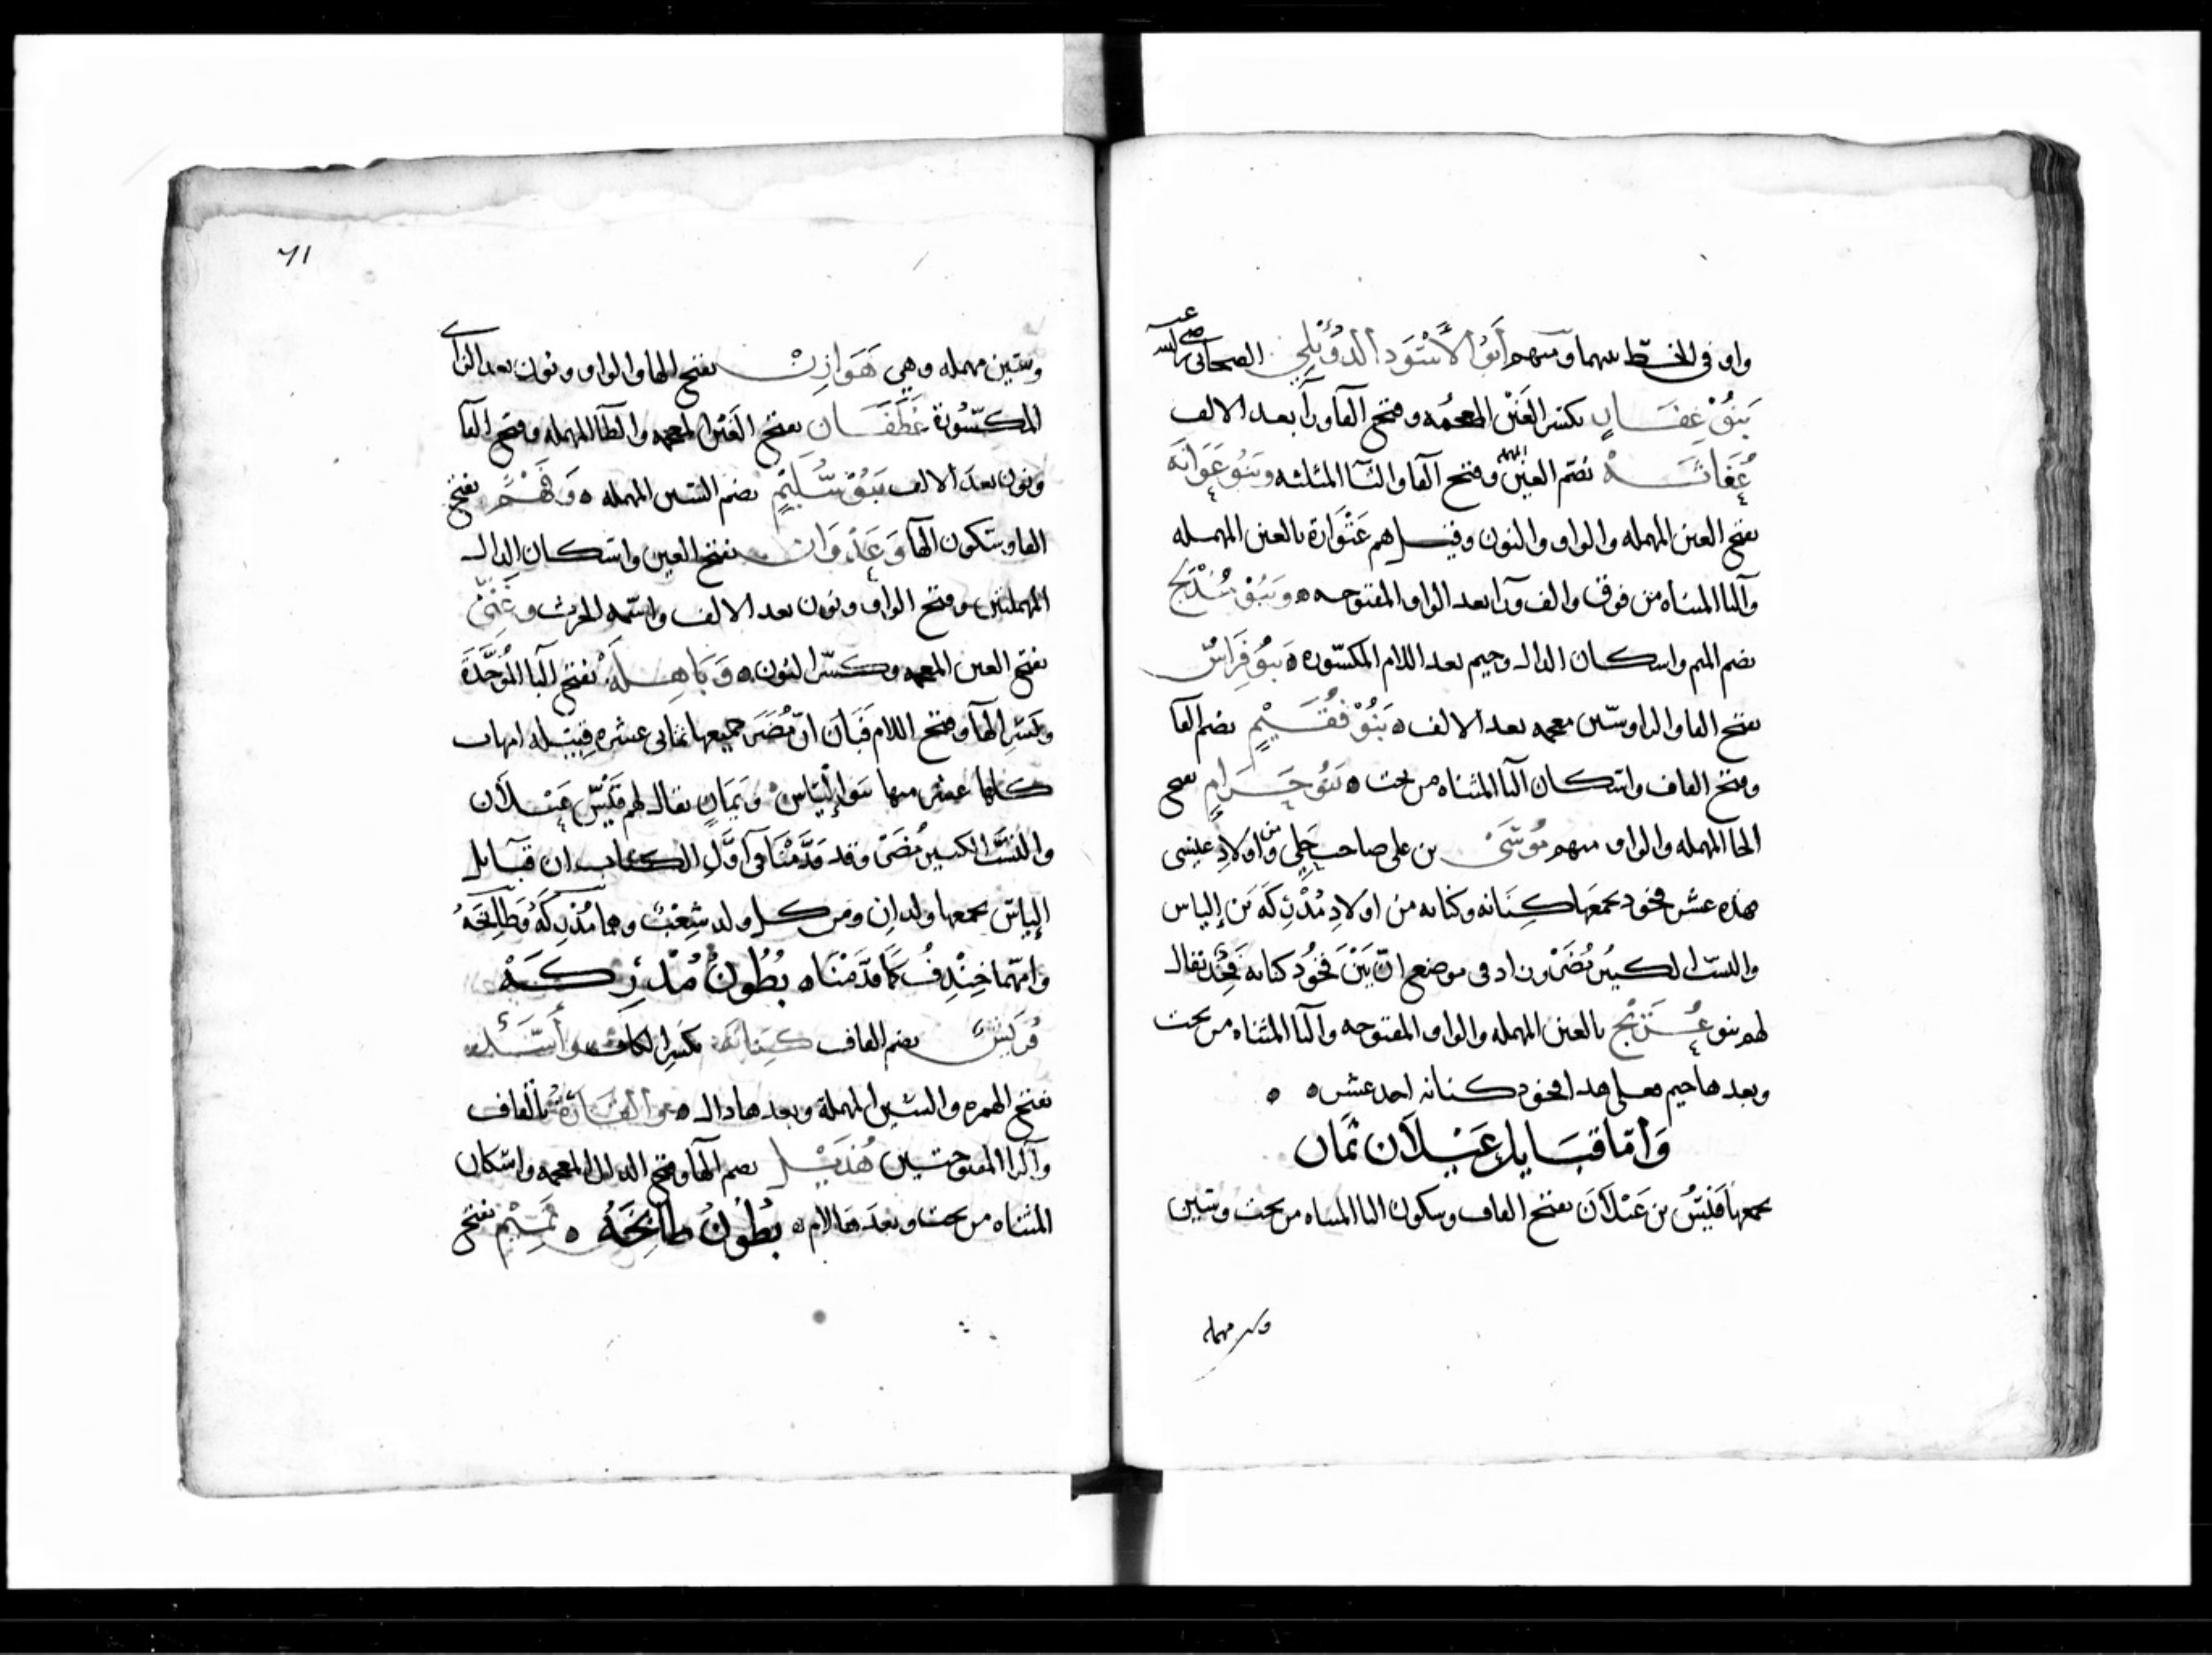 واو في الخط بينهما ومنهم أبو الأسود الدؤيلي الصحابي رضي الله عنه
بنو غفار بكسر الغين المعجمه وفتح الفا ورا بعد الالف
غفاثه بضم العين المهمله وفتح الفا والثا المثلثه وبنو عوانه
بفتح العين المهمله والواو والنون وقيل هم عتوارة بالعين المهمله
والتا المثناه من فوق والف ورا بعد الواو المفتوحه ه وبنو مدلج
بضم الميم واسكان الدال وجيم بعد اللام المكسوره ه بنو فراس
بفتح الفا والرا وسين معجمه بعد الالف ه بنو فقيم بضم الفا
وفتح القاف واسكان اليا المثناه من تحت ه بنو حرام بفتح
الحا المهمله والراء ومنهم موسى بن علي صاحب حلي من اولاد عيسى
هذه عشر فخوذ يجمعها كنانه وكنانه من اولاد مدركه بن إلياس
والنسب الكبير مضر وزاد في موضع ان بين فخوذ كنانه فخذ يقال
لهم بنو عريج بالعين المهمله والراء المفتوحه واليا المثناه من تحت
وبعدها جيم فعلى هذا فخوذ كنانه احد عشر ه ه
وأما قبايل عيلان ثمان
يجمعها قيس بن عيلان بفتح القاف وسكون اليا المثناه من تحت وسين
وسين مهمله
٦١
وسين مهمله وهي هوازن بفتح الها والواو ونون بعد الزاي
المكسورة غطفان بفتح الغين المعجمه والطا المهمله وفتح الفا
ونون بعد الالف بنو سليم بضم السين المهمله ه وفهم بفتح
الفا وسكون الها وعدوان بفتح العين واسكان الدال
المهملتين وفتح الواو ونون بعد الالف واسمه الحرث وغني
بفتح الغين المعجمه وكسر النون ه وباهلة بفتح البا الموحدة
وكسر الها وفتح اللام فبان ان مضر جميعها ثماني عشره قبيله امهات
كلها عشر منها بنو إلياس وثمان يقال لهم قيس عيلان
والنسب الكبير مضر وقد قدمنا في أول الكتاب ان قبايل
إلياس يجمعها ولدان ومن كل ولد شعب وهما مدركه وطابخه
وامهما خندف كما قدمناه بطون مدركه
قريش بضم القاف كنانة بكسر الكاف وأسد
بفتح الهمزه والسين المهملة وبعدها دال ه والقارة بالقاف
والرا المفتوحتين هذيل بضم الها وفتح الذال المعجمه واسكان
المثناه من تحت وبعدها لام ه بطون طابخه ه تميم بفتح